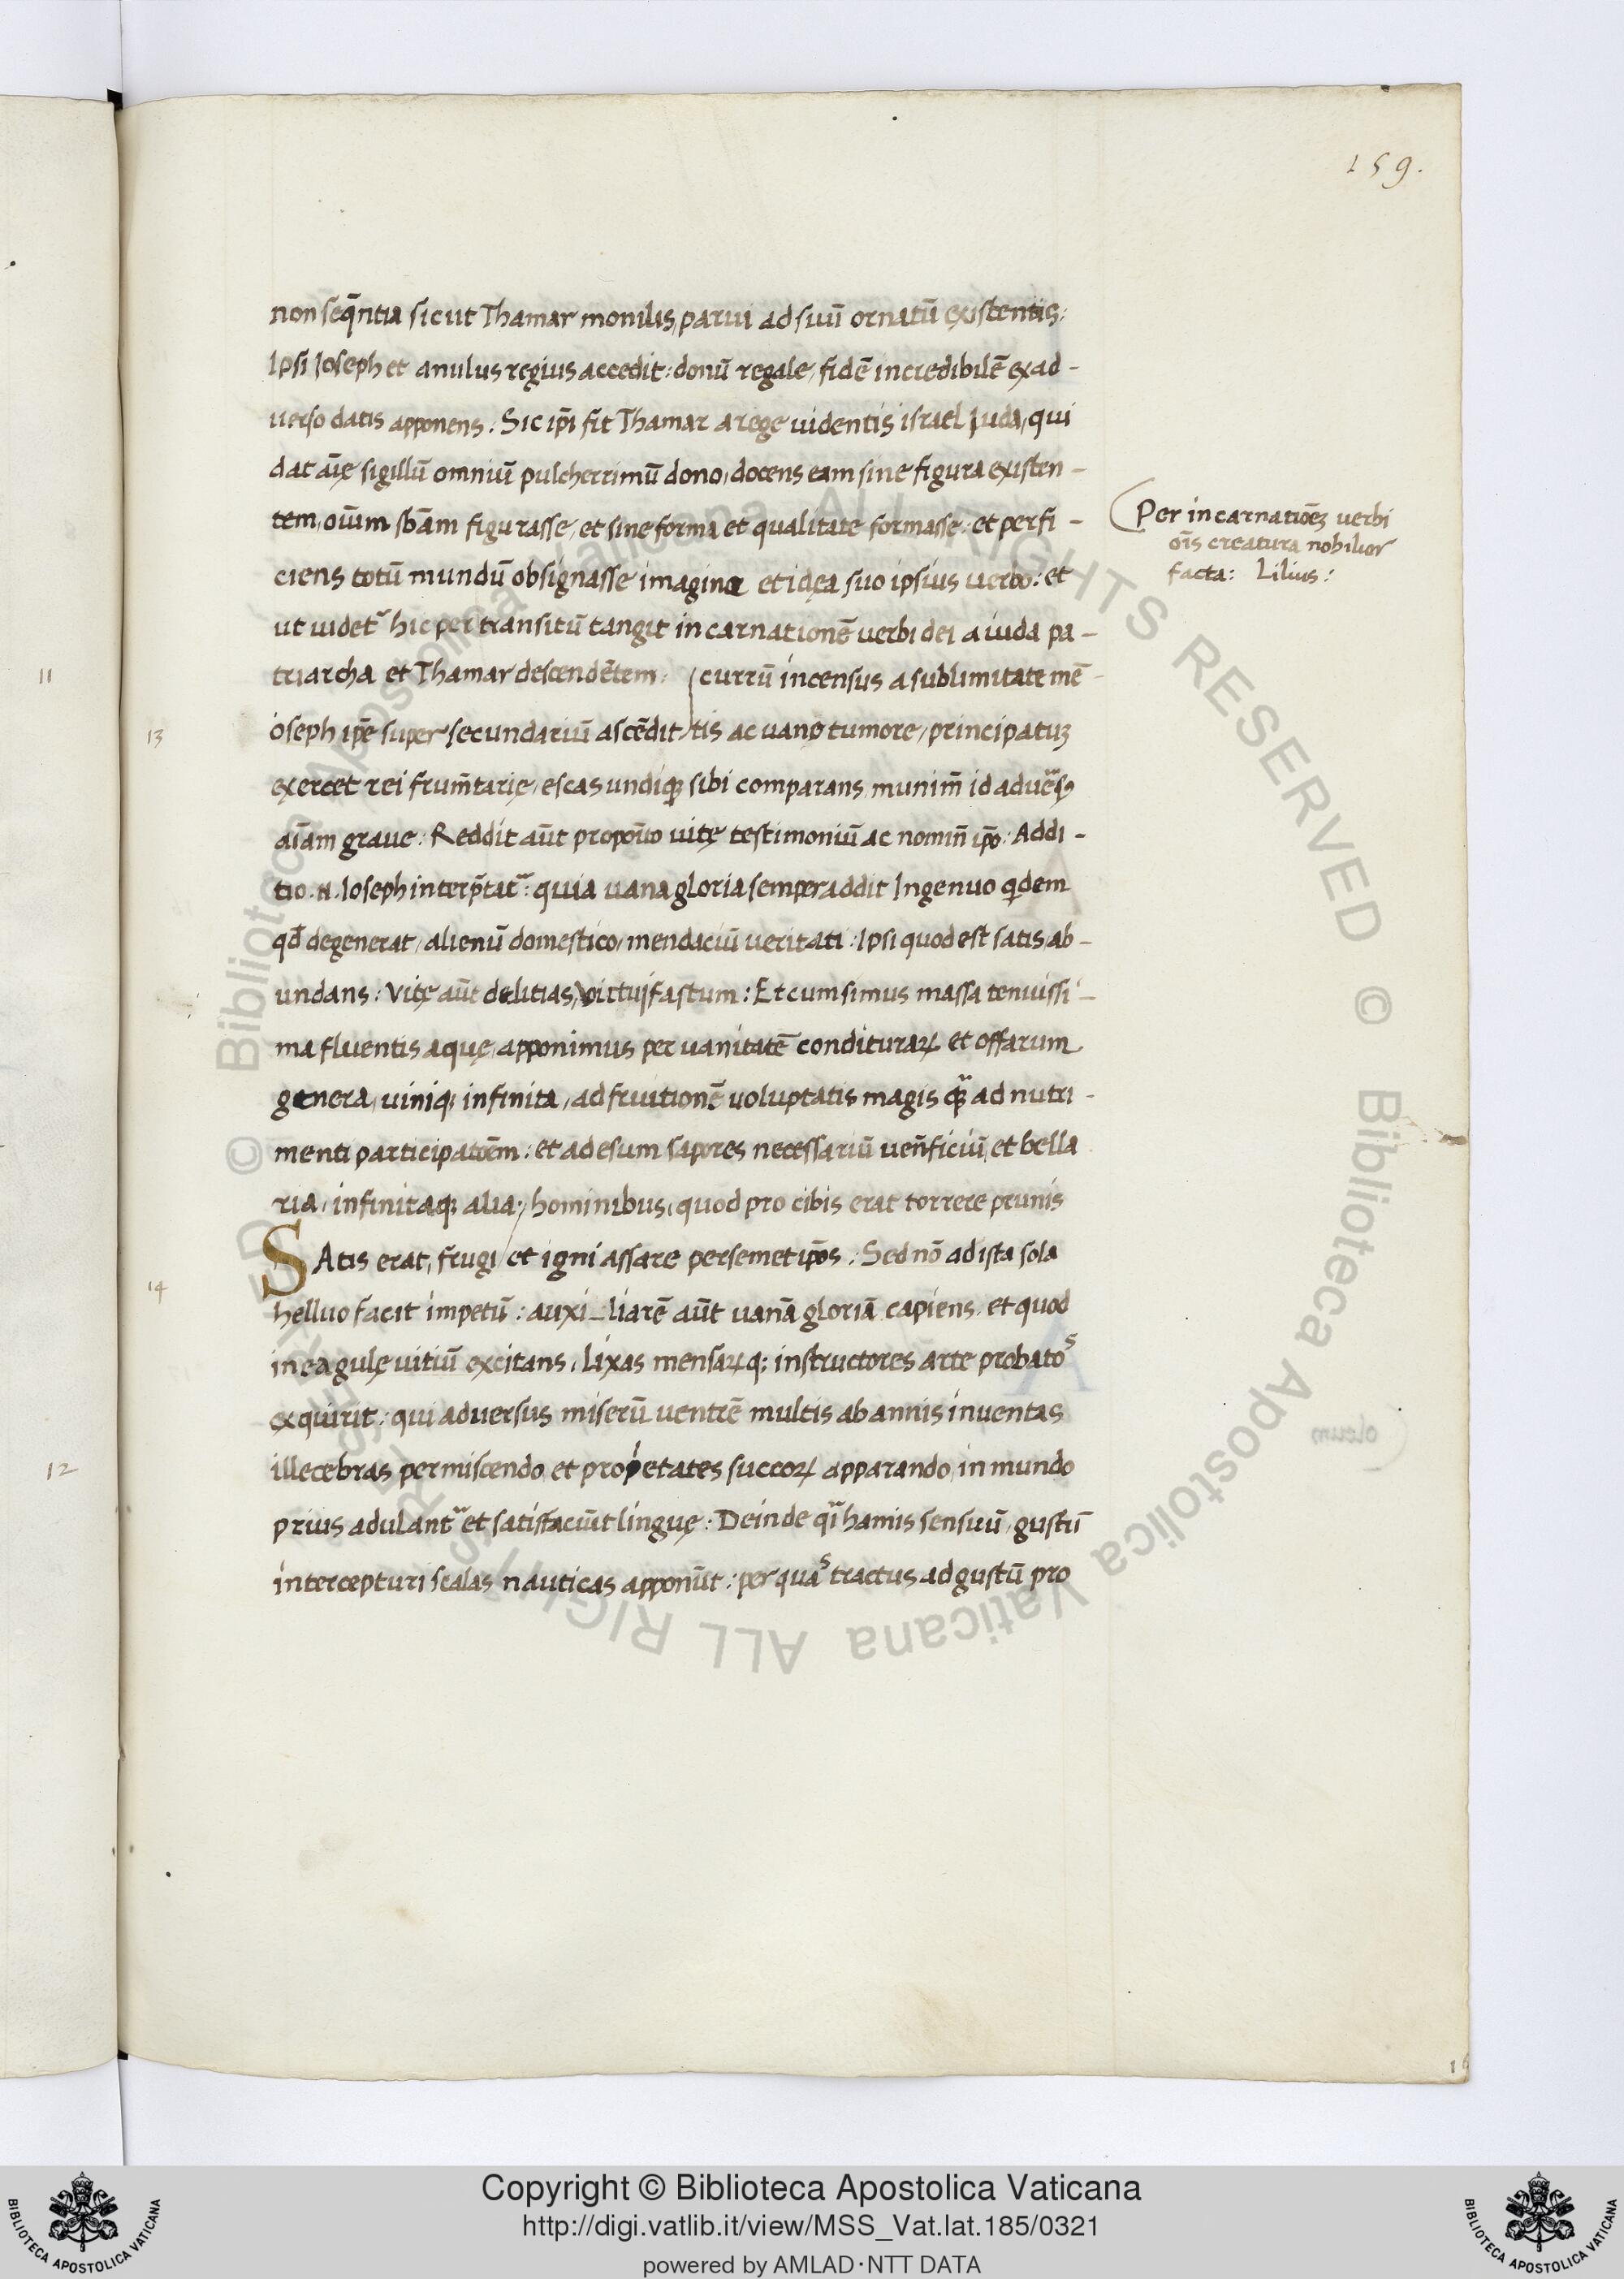 159.
non seq̄ntia sicut Thamar monilis, parui ad suū ornatū existentis:
Ipsi Ioseph et anulus regius accedit: donū regale, fidē incredibilē ex ad-
uerso datis apponens: Sic ip̄i fit Thamar a rege uidentis israel Iuda, qui
dat aīę sigillū omniū pulcherrimū dono, docens eam sine figura existen-
tem, oīum sb̄am figurasse, et sine forma et qualitate formasse: et perfi-
ciens totū mundū obsignasse imagine et idęa suo ipsius uerbo: et
ut uidet᷑ hic per transitū tangit incarnationē uerbi dei a iuda pa-
triarcha et Thamar descendētem: currū incensus a sublimitate mē-
ioseph ip̄e super secundariū ascēdit, tis ac uano tumore, principatuꝫ
exercet rei frum̄tarię, escas undiqꝫ sibi comparans munim̄ id aduersꝰ
aīam graue: Reddit aūt proposito uitę testimoniū ac nomin̄ ip̄o: Addi-
tio .n. Ioseph interp̄tat᷑: quia uana gloria semper addit Ingenuo qdem
qd̄ degenerat, alienū domestico, mendaciū ueritati: Ipsi quod est satis, ab-
undans: Vitę aūt delitias, victui fastum: Et cum simus massa tenuissi-
ma fluentis aquę, apponimus per uanitatē conditurarꝝ et offarum
genera, uiniqꝫ infinita, ad fruitionē uoluptatis magis qꝫ ad nutri-
menti participatōem: et ad esum sapores necessariū ven̄ficiū, et bella
ria, infinitaqꝫ alia: hominibus, quod pro cibis erat torrere prunis
SAtis erat, frugi et igni assare per semet ip̄os: Sed nō ad ista sola
helluo facit impetū: auxi_liarē aūt uanā gloriā capiens, et quod
in ea gulę uitiū excitans, Lixas mensarꝝqꝫ instructores arte probatos
exquirit: qui aduersus miserū uentrē multis ab annis inuentas
illecebras permiscendo, et proprietates succorꝝ apparando, in mundo
prius adulant᷑ et satisfaciūt linguę: Deinde q̄ hamis sensuū, gustū
intercepturi scalas nauticas apponūt: per quas tractus ad gustū pro
Per incarnatiōeꝫ uerbi
oīs creatura nobilior
facta: Lilius:
11
13
14
12
Copyright © Biblioteca Apostolica Vaticana
http://digi.vatlib.it/view/MSS_Vat.lat.185/0321
powered by AMLAD·NTT DATA
BIBLIOTECA APOSTOLICA VATICANA
BIBLIOTECA APOSTOLICA VATICANA
© Biblioteca Apostolica Vaticana ALL RIGHTS RESERVED © Biblioteca Apostolica Vaticana ALL RIGHTS RESERVED